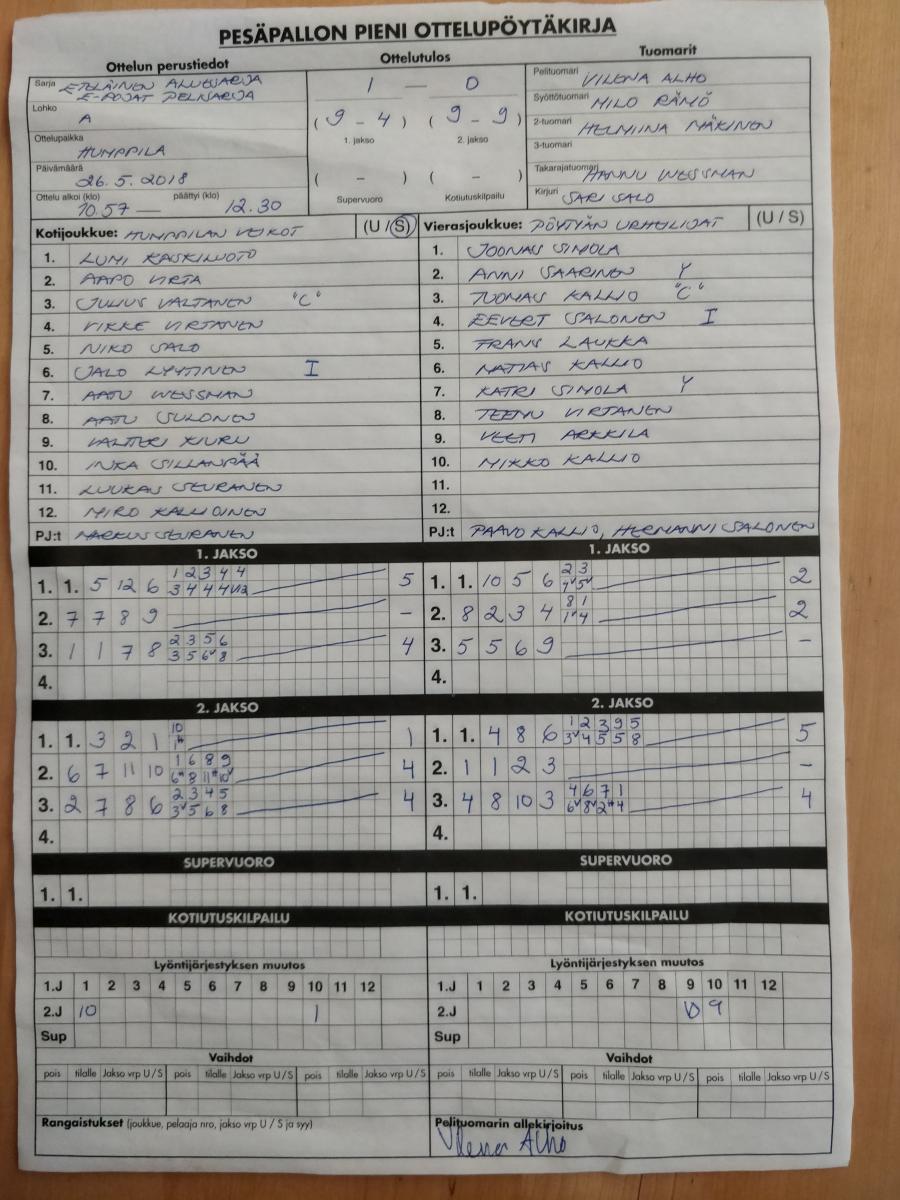 PESÄPALLON PIENI OTTELUPÖYTÄKIRJA
Ottelun perustiedot
Sarja ETELÄINEN ALUESARJA
E-POJAT PELISARJA
Lohko
A
Ottelupaikka
HUMPPILA
Päivämäärä
26.5.2018
Ottelu alkoi (klo) päättyi (klo)
10.57 — 12.30
Ottelutulos
1 — 0
( 9 - 4 ) ( 9 - 9 )
1. jakso 2. jakso
( - ) ( - )
Supervuoro Kotiutuskilpailu
Tuomarit
Pelituomari VILENA ALHO
Syöttötuomari MILO RÄMÖ
2-tuomari HELMIINA MÄKINEN
3-tuomari
Takarajatuomari HANNU WESSMAN
Kirjuri SARI SALO
Kotijoukkue: HUMPPILAN VEIKOT (U / S)
1. LUMI KASKILUOTO
2. AAPO VIRTA
3. JULIUS VALTANEN "C"
4. VIKKE VIRTANEN
5. NIKO SALO
6. JALO LYYTINEN I
7. AATU WESSMAN
8. AATU SULONEN
9. VALTTERI KIURU
10. INKA SILLANPÄÄ
11. LUUKAS SEURANEN
12. MIRO KALLIOINEN
PJ:t MARKUS SEURANEN
Vierasjoukkue: PÖYTYÄN URHEILIJAT (U / S)
1. JOONAS SIMOLA
2. ANNI SAARINEN Y
3. TUOMAS KALLIO "C"
4. EEVERT SALONEN I
5. FRANS LAUKKA
6. MATIAS KALLIO
7. KATRI SIMOLA Y
8. TEEMU VIRTANEN
9. VEETI ARKKILA
10. MIKKO KALLIO
11.
12.
PJ:t PAAVO KALLIO, HERMANNI SALONEN
1. JAKSO
1 2 3 4 4
1. 1. 5 12 6 5
3 4 4 4 12
2. 7 7 8 9 -
2 3 5 6
3. 1 1 7 8 4
3 5 6 8
4.
1. JAKSO
2 3
1. 1. 10 5 6 2
4 5
8 1
2. 8 2 3 4 2
1 4
3. 5 5 6 9 -
4.
2. JAKSO
10
1. 1. 3 2 1 1
1
1 6 8 9
2. 6 7 11 10 4
6 8 11 10
2 3 4 5
3. 2 7 8 6 4
3 5 6 8
4.
2. JAKSO
1 2 3 9 5
1. 1. 4 8 6 5
3 4 5 5 8
2. 1 1 2 3 -
4 6 7 1
3. 4 8 10 3 4
6 8 2 4
4.
SUPERVUORO
1. 1.
SUPERVUORO
1. 1.
KOTIUTUSKILPAILU
KOTIUTUSKILPAILU
Lyöntijärjestyksen muutos
1.J 1 2 3 4 5 6 7 8 9 10 11 12
2.J 10 1
Sup
Lyöntijärjestyksen muutos
1.J 1 2 3 4 5 6 7 8 9 10 11 12
2.J 10 9
Sup
Vaihdot
pois tilalle Jakso vrp U / S pois tilalle Jakso vrp U / S pois tilalle Jakso vrp U / S
Vaihdot
pois tilalle Jakso vrp U / S pois tilalle Jakso vrp U / S pois tilalle Jakso vrp U / S
Rangaistukset (joukkue, pelaaja nro, jakso vrp U / S ja syy)
Pelituomarin allekirjoitus
Vilena Alho